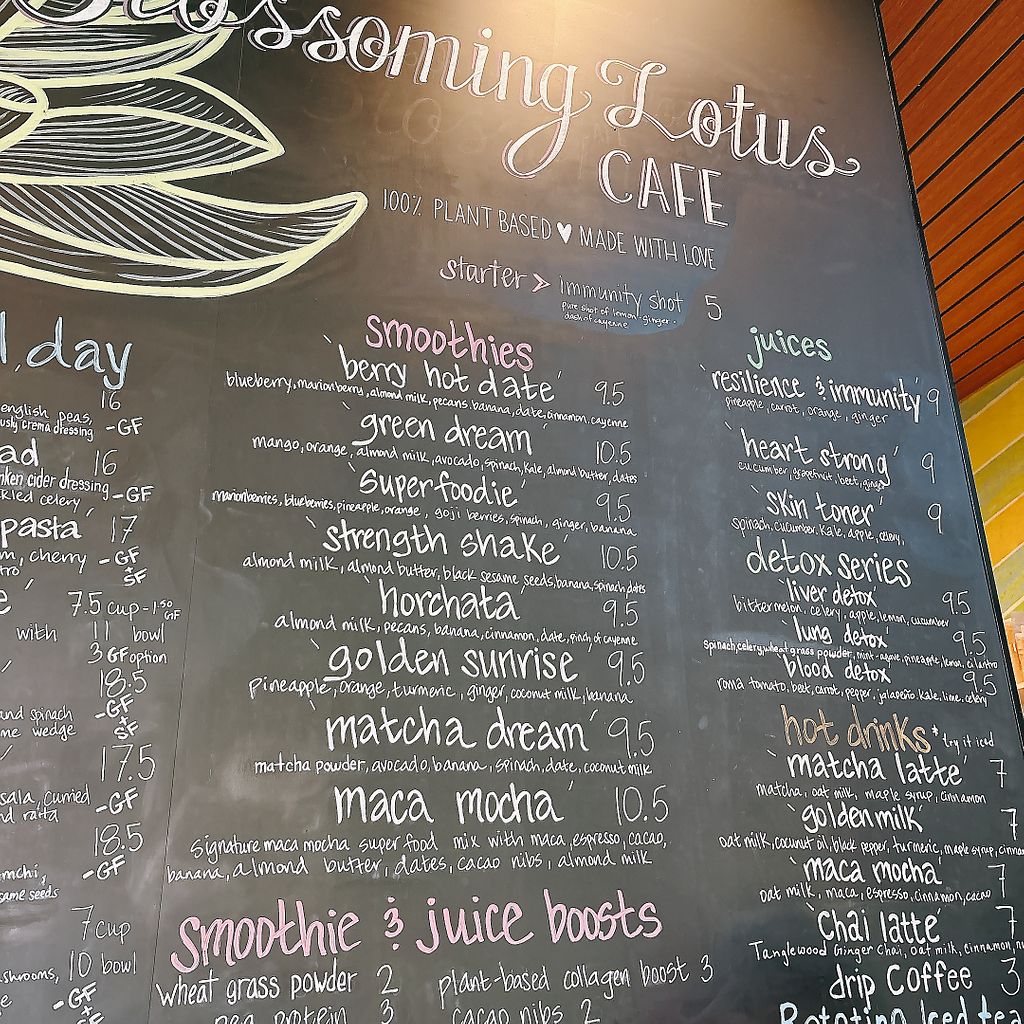 Blossoming Lotus
CAFE
100% PLANT BASED ♥ MADE WITH LOVE
starter > immunity shot 5
pure shot of lemon-ginger-
dash of cayenne
day
16
english peas,
crema dressing -GF
16
cider dressing -GF
celery
pasta' 17
cherry -GF
+
SF
7.5 cup - 1.50 GF
with 11 bowl
3 GF option
18.5
and spinach -GF
wedge +
SF
17.5
curried -GF
raita
18.5
-GF
seeds
7 cup
10 bowl
-GF
smoothies
'berry hot date' 9.5
blueberry, marionberry, almond milk, pecans, banana, date, cinnamon, cayenne
'green dream' 10.5
mango, orange, almond milk, avocado, spinach, kale, almond butter, dates
'superfoodie' 9.5
marionberries, blueberries, pineapple, orange, goji berries, spinach, ginger, banana
'strength shake' 10.5
almond milk, almond butter, black sesame seeds, banana, spinach, dates
'horchata' 9.5
almond milk, pecans, banana, cinnamon, date, pinch of cayenne
'golden sunrise' 9.5
pineapple, orange, turmeric, ginger, coconut milk, banana
'matcha dream' 9.5
matcha powder, avocado, banana, spinach, date, coconut milk
'maca mocha' 10.5
signature maca mocha superfood mix with maca, espresso, cacao,
banana, almond butter, dates, cacao nibs, almond milk
smoothie & juice boosts
wheat grass powder 2
plant-based collagen boost 3
pea protein 3
cacao nibs 2
juices
'resilience & immunity' 9
pineapple, carrot, orange, ginger
'heart strong' 9
cucumber, grapefruit, beet, ginger
'skin toner' 9
spinach, cucumber, kale, apple, celery,
detox series
'liver detox' 9.5
bittermelon, celery, apple, lemon, cucumber
'lung detox' 9.5
spinach, celery, wheat grass powder, mint-agave, pineapple, lemon, cilantro
'blood detox' 9.5
roma tomato, beet, carrot, pepper, jalapeño, kale, lime, celery
hot drinks * try it iced
'matcha latte' 7
matcha, oat milk, maple syrup, cinnamon
'golden milk' 7
oat milk, coconut oil, black pepper, turmeric, maple syrup, cinnam
'maca mocha' 7
oat milk, maca, espresso, cinnamon, cacao
'chai latte' 7
Tanglewood Ginger Chai, oat milk, cinnamon,
drip coffee 3
Rotating Iced tea